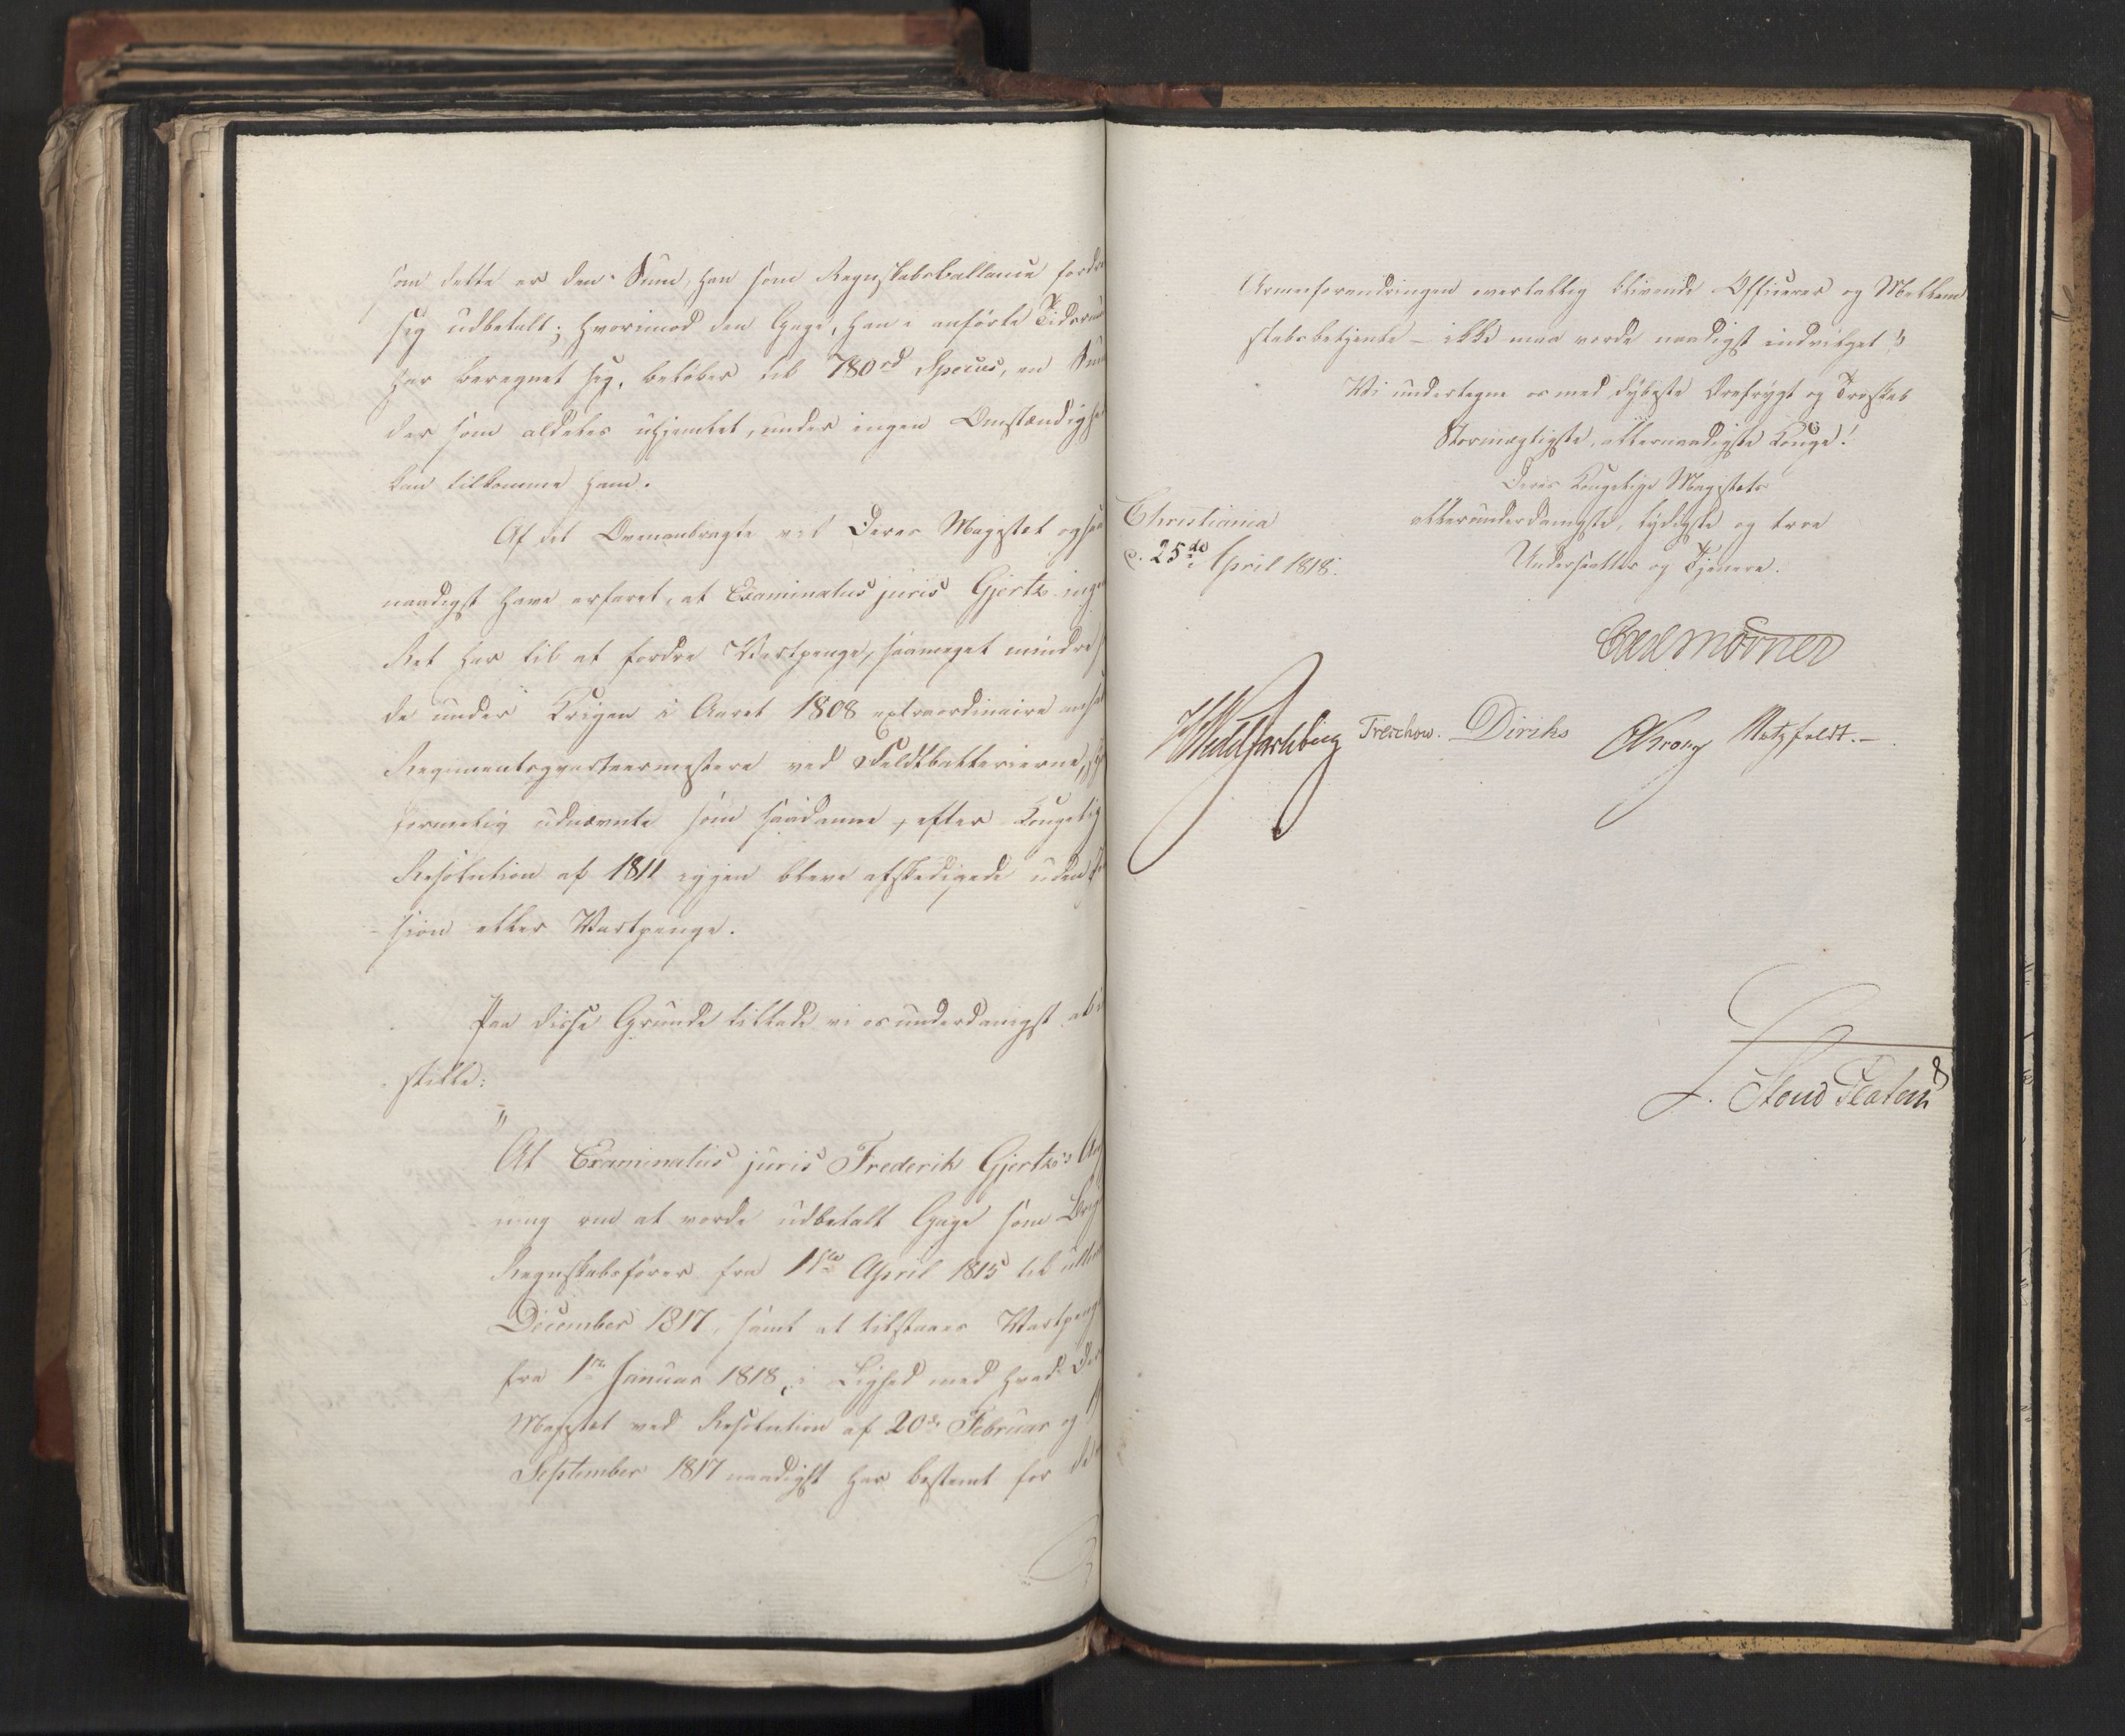 som dette er den Sum, han som Regnskabsballance fordr
sig udbetalt; hvorimod den Gage, han i anførte Tidsrum
har beregnet sig, beløber til 780rd Species, en Sum
der som aldeles uhjemlet, under ingen Omstændighe
kan tilkomme ham.
Af det Ovenanbragte vil Deres Majestet ogsaa
naadigst have erfaret, at Examinatus juris Gjertz ingen
Ret har til at fordre Vartpenge, saameget mindre
de under Krigen i Aaret 1808 extraordinaire ansat
Regimentsqvarteermestere ved Feldtbatterierne,
formelig udnævnte som saadanne, efter Kongelig
Resolution af 1811 igjen bleve afskedigede uden
sion eller Vartpenge.
Paa disse Grunde tillade vi os underdanigst at
stille:
"At Examinatus juris Frederik Gjertz's An
ning om at vorde udbetalt Gage som Brig
Regnskabsfører fra 1ste April 1815 til ultim
December 1817, samt at tilstaaes Vartpenge
fra 1ste Januar 1818, i Lighed med hvad De
Majestet ved Resolution af 20de Februar og
September 1817 naadigst har bestemt for de
Armeeforandringen overtallig blivende Officerer og Mellem
stabsbetjente – ikke maa vorde naadigst indvilget."
Vi undertegne os med dybeste Ærefrygt og Troskab
Stormægtigste, allernaadigste Konge!
Deres Kongelige Majestets
Christiania
d. 25de April 1818.
allerunderdanigste, lydigste og troe
Undersaatter og Tjenere.
Carl Mörner
Wedel Jarlsberg Treschow. Diriks Krog Motzfeldt.
L. Stoud Platou